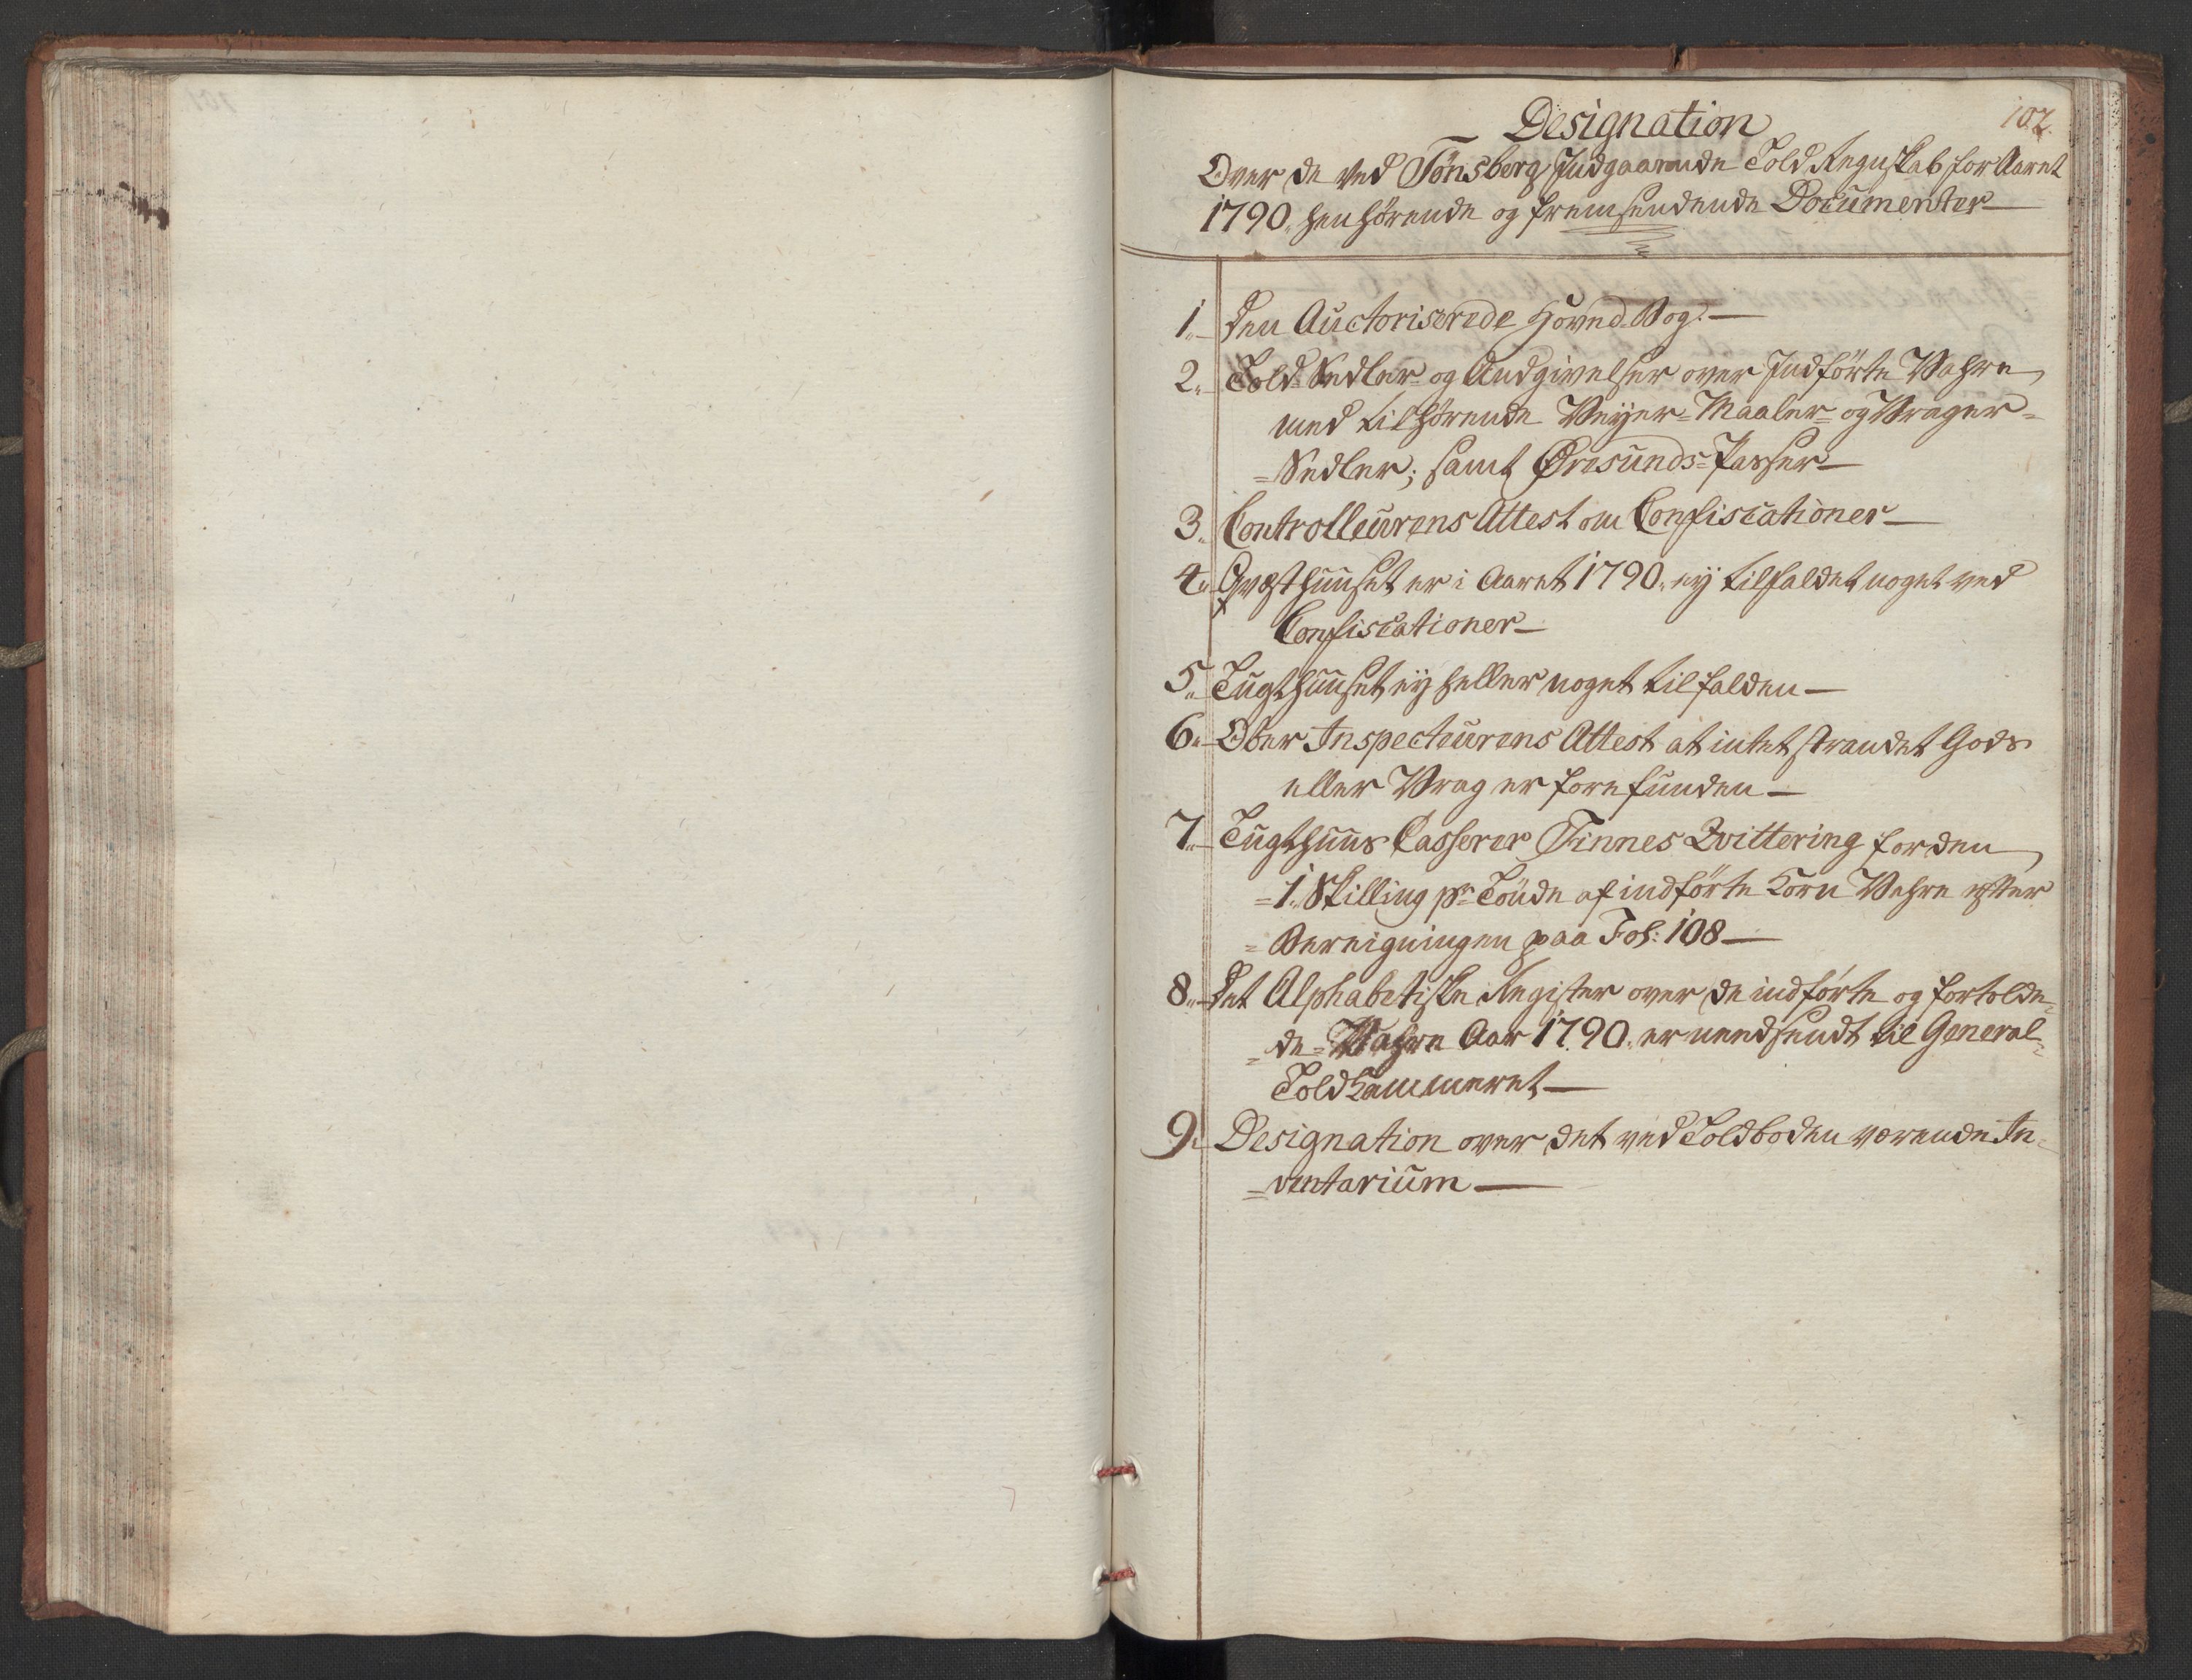 102.
Designation
Over de ved Tönsberg Indgaaende Told Regnskab for Aaret
1790. henhörende og fremsendende Documenter
1. Den Auctoriserede Hoved Bog.
2. Told Sedler og Andgivelser over Indförte Vahre
med tilhörende Veyer= Maaler= og Vrager=
=Sedler; samt Öresunds=Passer
3. Controlleurens Attest om Confiscationer
4. Qvæsthuuset er i Aaret 1790. ey tilfaldet noget ved
Confiscationer
5. Tugthuuset ey heller noget tilfalden
6. Ober Inspecteurens Attest at intet strandet Gods
eller Vrag er forefunden
7. Tugthuus Casserer Finnes Qvittering for den
=1. Skilling pr Tönde af indförte Korn Vahre efter
=Beregningen paa Fol: 108
8. Det Alphabetiske Register over de indförte og fortolde=
=de= Vahre Aar 1790. er neendsendt til General=
Toldkammeret
9. Designation over det ved Toldboden værende In=
=ventarium